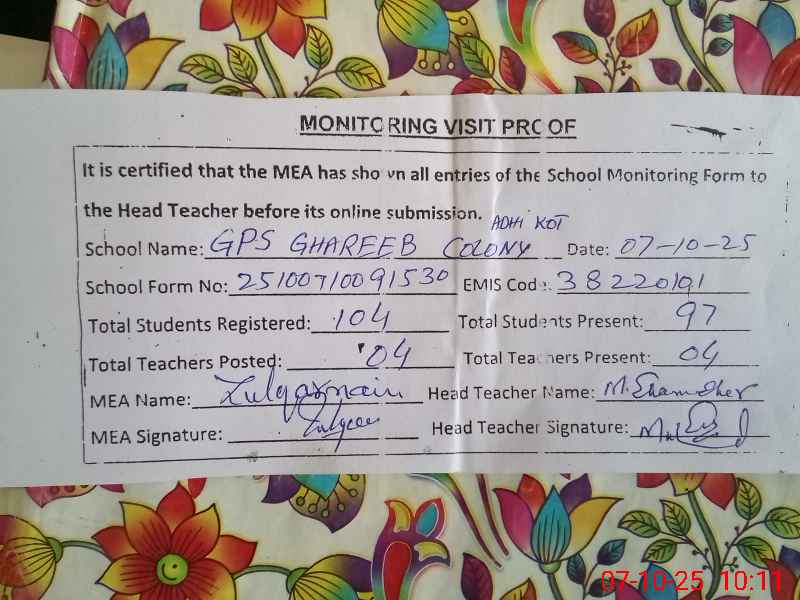 MONITORING VISIT PROOF
It is certified that the MEA has shown all entries of the School Monitoring Form to
the Head Teacher before its online submission.
ADHI KOT
School Name: GPS GHAREEB COLONY Date: 07-10-25
School Form No: 25100710091530 EMIS Code: 38220191
Total Students Registered: 104 Total Students Present: 97
Total Teachers Posted: 04 Total Teachers Present: 04
MEA Name: Zulqarnain Head Teacher Name: M.Shamsher
MEA Signature: Head Teacher Signature:
07-10-25 10:11